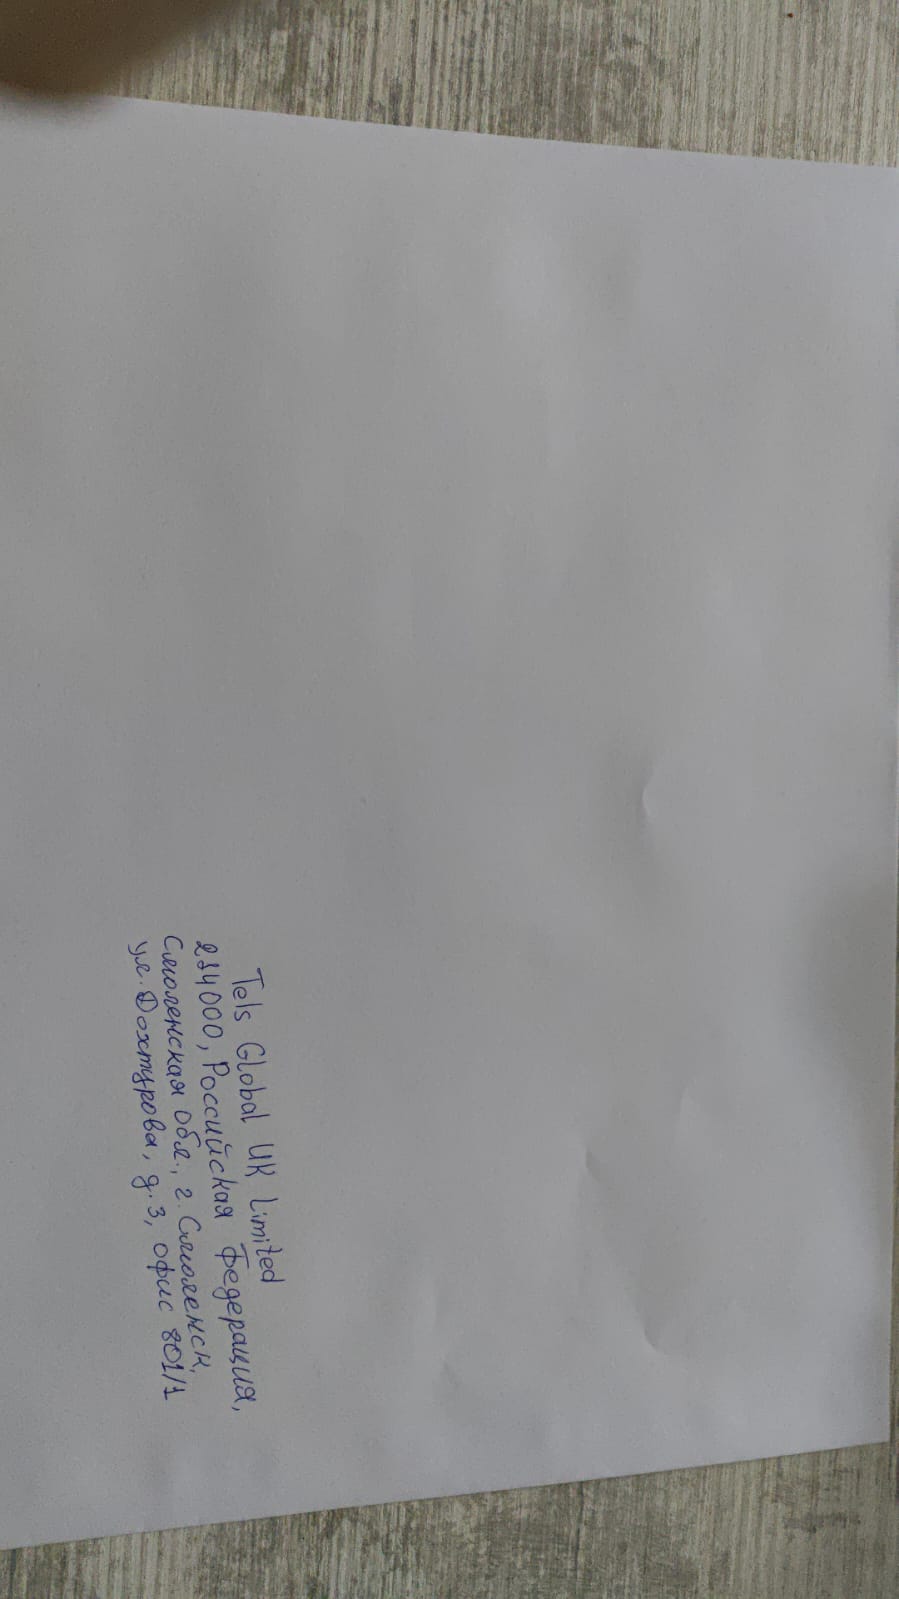 Tels Global UK Limited
214000, Российская Федерация,
Смоленская обл., г. Смоленск,
ул. Дохтурова, д. 3, офис 801/1